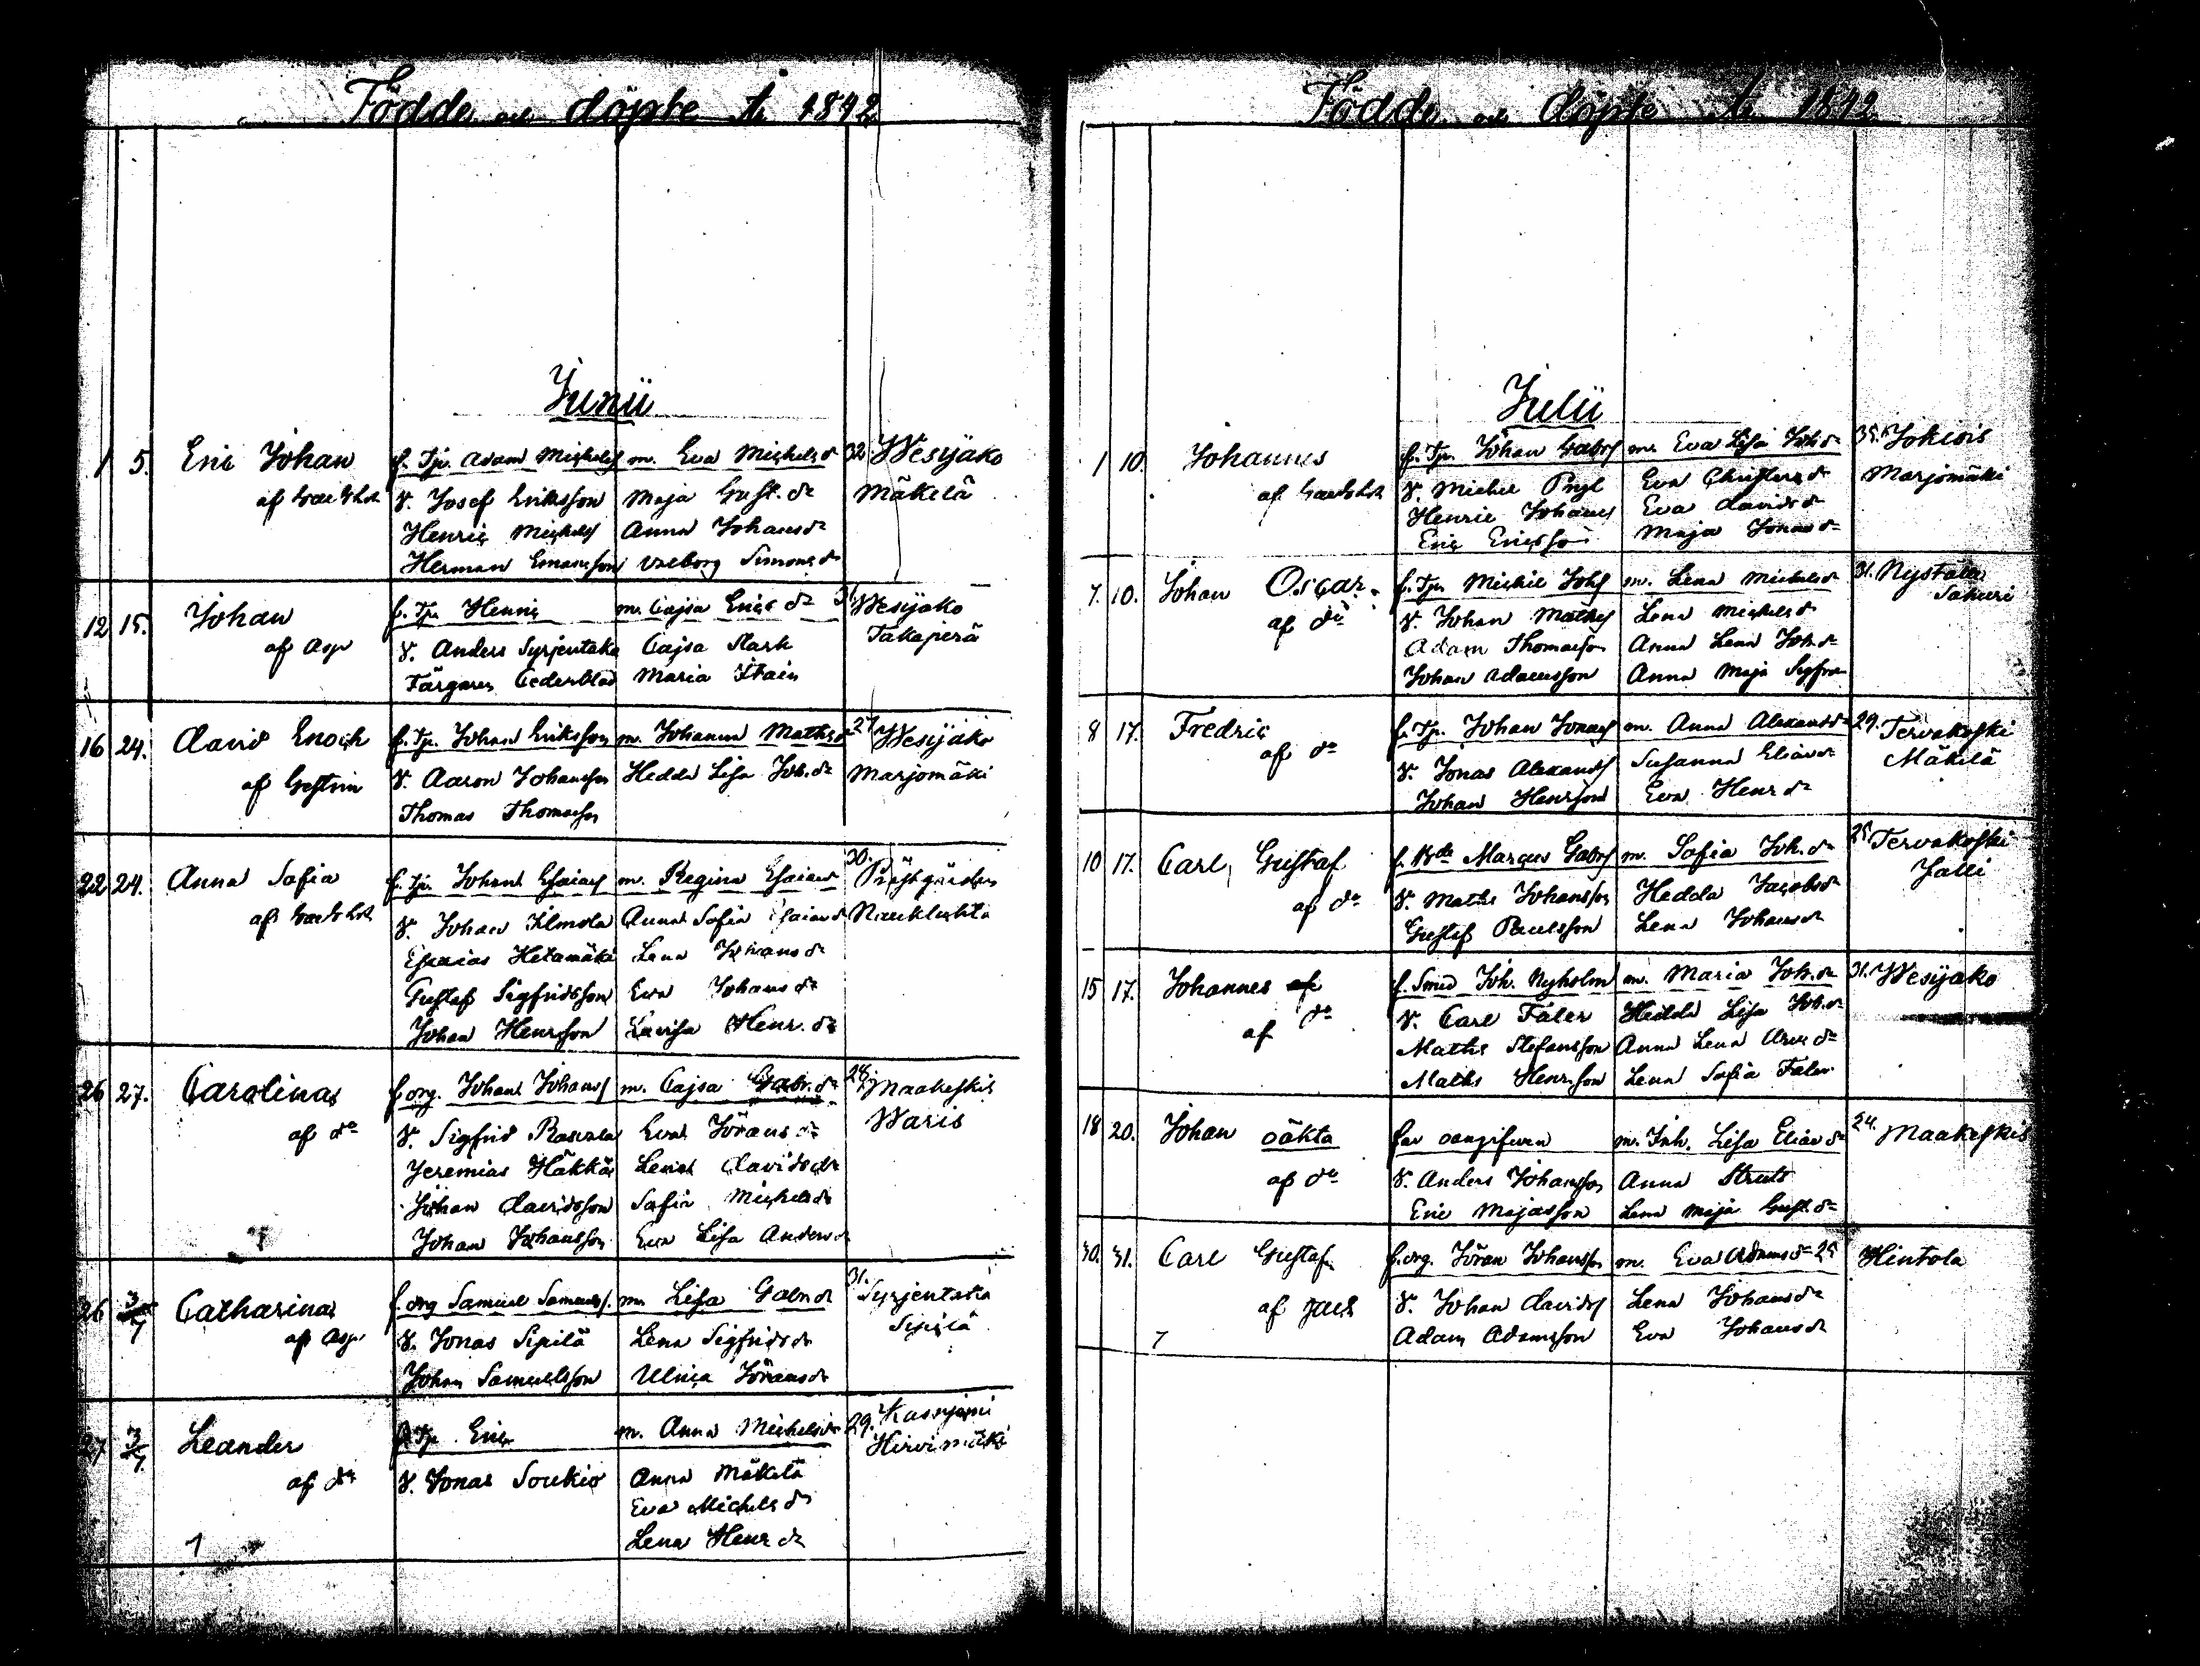 Födde och döpte År 1842
Junii
1 5. Eric Johan f. Tjr. Adam Michelss m. Eva Michelsdr 32 Wesijako
V. Josef Eriksson Maja Gust.dr Mäkelä
Henric Michelss Anna Johansdr
Herman Emansson Valborg Simonsdr
12 15. Johan f. Tjr. Henric m. Cajsa Ericsdr Wesijako
af Asp V. Anders Syrjentaka Cajsa Stark Takaperä
Färgaren Cederblad Maria Itain
16 24. David Enoch f. Tjr. Johan Eriksson m. Johanna Mathsdr 27 Wesijako
af Gestrin V. Aaron Johansson Hedda Lisa Joh.dr Marjomäki
Thomas Thomasson
22 24. Anna Sofia f. Tjr. Johan Esaiass m. Regina Esaiasdr 30. Prästgården
V. Johan Ilmola Anna Sofia Esaiasdr
Esaias Hetamäki Lena Johansdr
Gustaf Sigfridsson Eva Johansdr
Johan Henrsson Lovisa Henr.dr
26 27. Carolina f. org. Johan Johanss m. Cajsa Gabr.dr 28. Maakeskis
af do V. Sigfrid Rascala Eva Jöransdr Waris
Jeremias Häkkäs Lena Davidsdr
Johan Davidsson Sofia Michelsdr
Johan Johansson Eva Lisa Andersdr
26 3/7 Catharina f. org Samuel Samuelss. m. Lisa Gabrdr 31. Syrjentaka
af Asp V. Jonas Sipilä Lena Sigfridsdr Sipilä
Johan Samuelsson Ulrica Jöransdr
27 3/7 Leander f. Tjr. Eric m. Anna Michelsdr 29. Kassijärvi
af do V. Jonas Soukio Anna Mäkelä Hirvimäki
Eva Michelsdr
Lena Henrdr
1
Födde och döpte År 1842.
Julii
1 10. Johannes f. Tjr. Johan Gabrss m. Eva Lisa Joh.dr 35. Jokiois
V. Michel Pryl Eva Christersdr Marjomäki
Henric Johanss Eva Davidsdr
Eric Ericsson Maja Jonasdr
7. 10. Johan Oscar. f. Tjr. Michel Johss m. Lena Michelsdr 31. Nystala
af do V. Johan Mathss Lena Michelsdr Sakuri
Adam Thomasson Anna Lena Joh.dr
Johan Adamsson Anna Maja Sigfr
8 17. Fredric f. Tjr. Johan Jonass m. Anna Alexandsdr 29. Tervakoski
af do V. Jonas Alexandss Susanna Eliasdr Mäkelä
Johan Henrsson Eva Henrdr
10 17. Carl Gustaf f. Bde Marcus Gabrss m. Sofia Joh.dr 25 Tervakoski
af do V. Maths Johansson Hedda Jacobsdr Jalli
Gustaf Paulsson Lena Johansdr
15 17. Johannes af f. Smed Joh. Nyholm m. Maria Joh.dr 31. Wesijako
af do V. Carl Faler Hedda Lisa Joh.dr
Maths Stefansson Anna Lena Arvsdr
Maths Henrsson Lena Sofia Faler
18 20. Johan oäkta far oangifven m. Inh. Lisa Eliasdr 24. Maakeskis
af do V. Anders Johansson Anna Struts
Eric Majasson Lena Maja Gust.dr
30. 31. Carl Gustaf f. org. Jöran Johansson m. Eva Adamsdr 25 Hintola
af V. Johan Davidss Lena Johansdr
7 Adam Adamsson Eva Johansdr